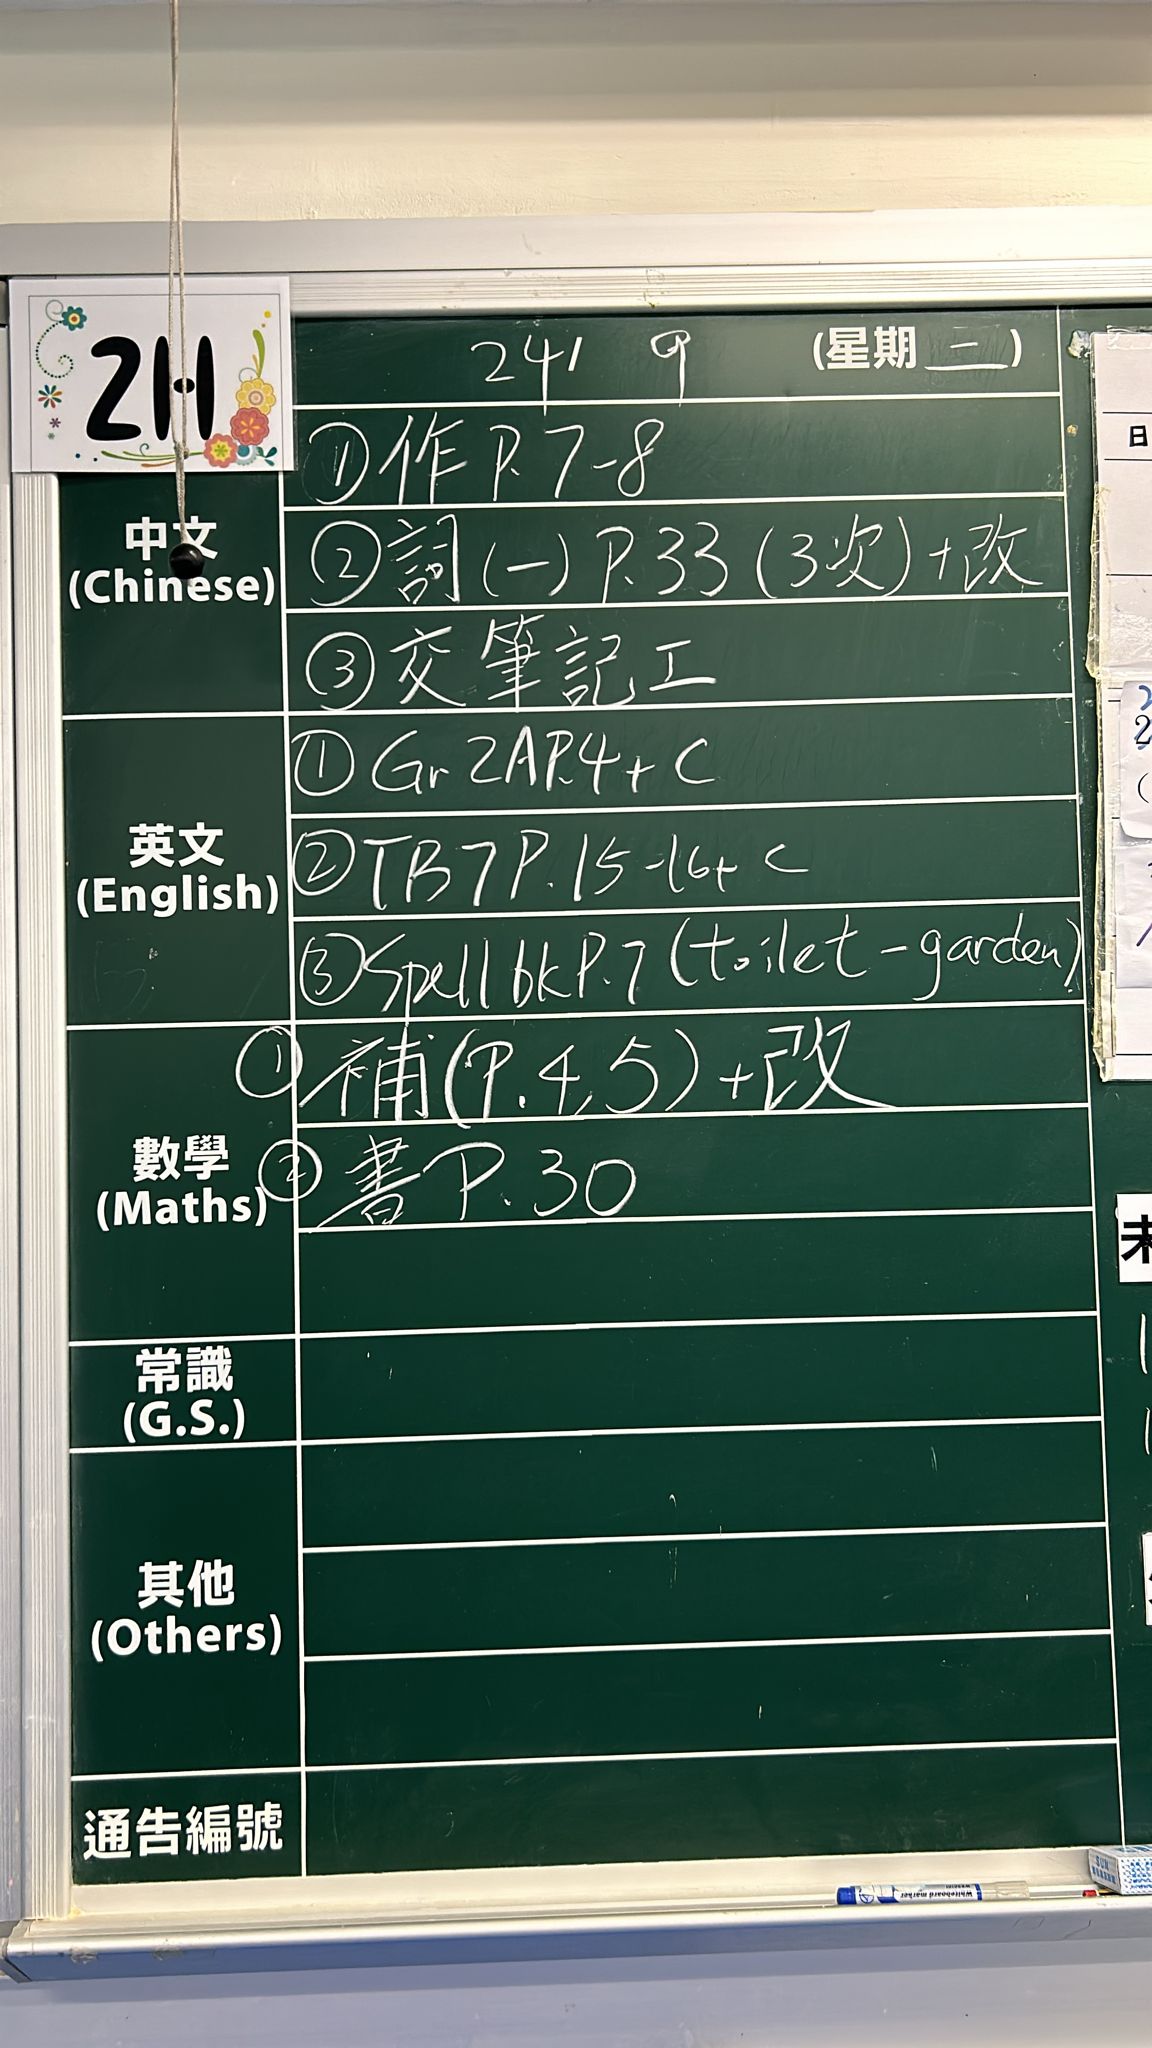 2H
24/ 9 (星期 二 )
中文
(Chinese)
① 作 P. 7-8
② 詞 (一) P. 33 (3次) + 改
③ 交 筆記工
英文
(English)
① Gr 2A P.4 + C
② TB 7 P. 15-16 + C
③ Spell bk P. 7 (toilet - garden)
數學
(Maths)
① 補 (P. 4, 5) + 改
② 書 P. 30
常識
(G.S.)
其他
(Others)
通告編號
日
Whiteboard marker